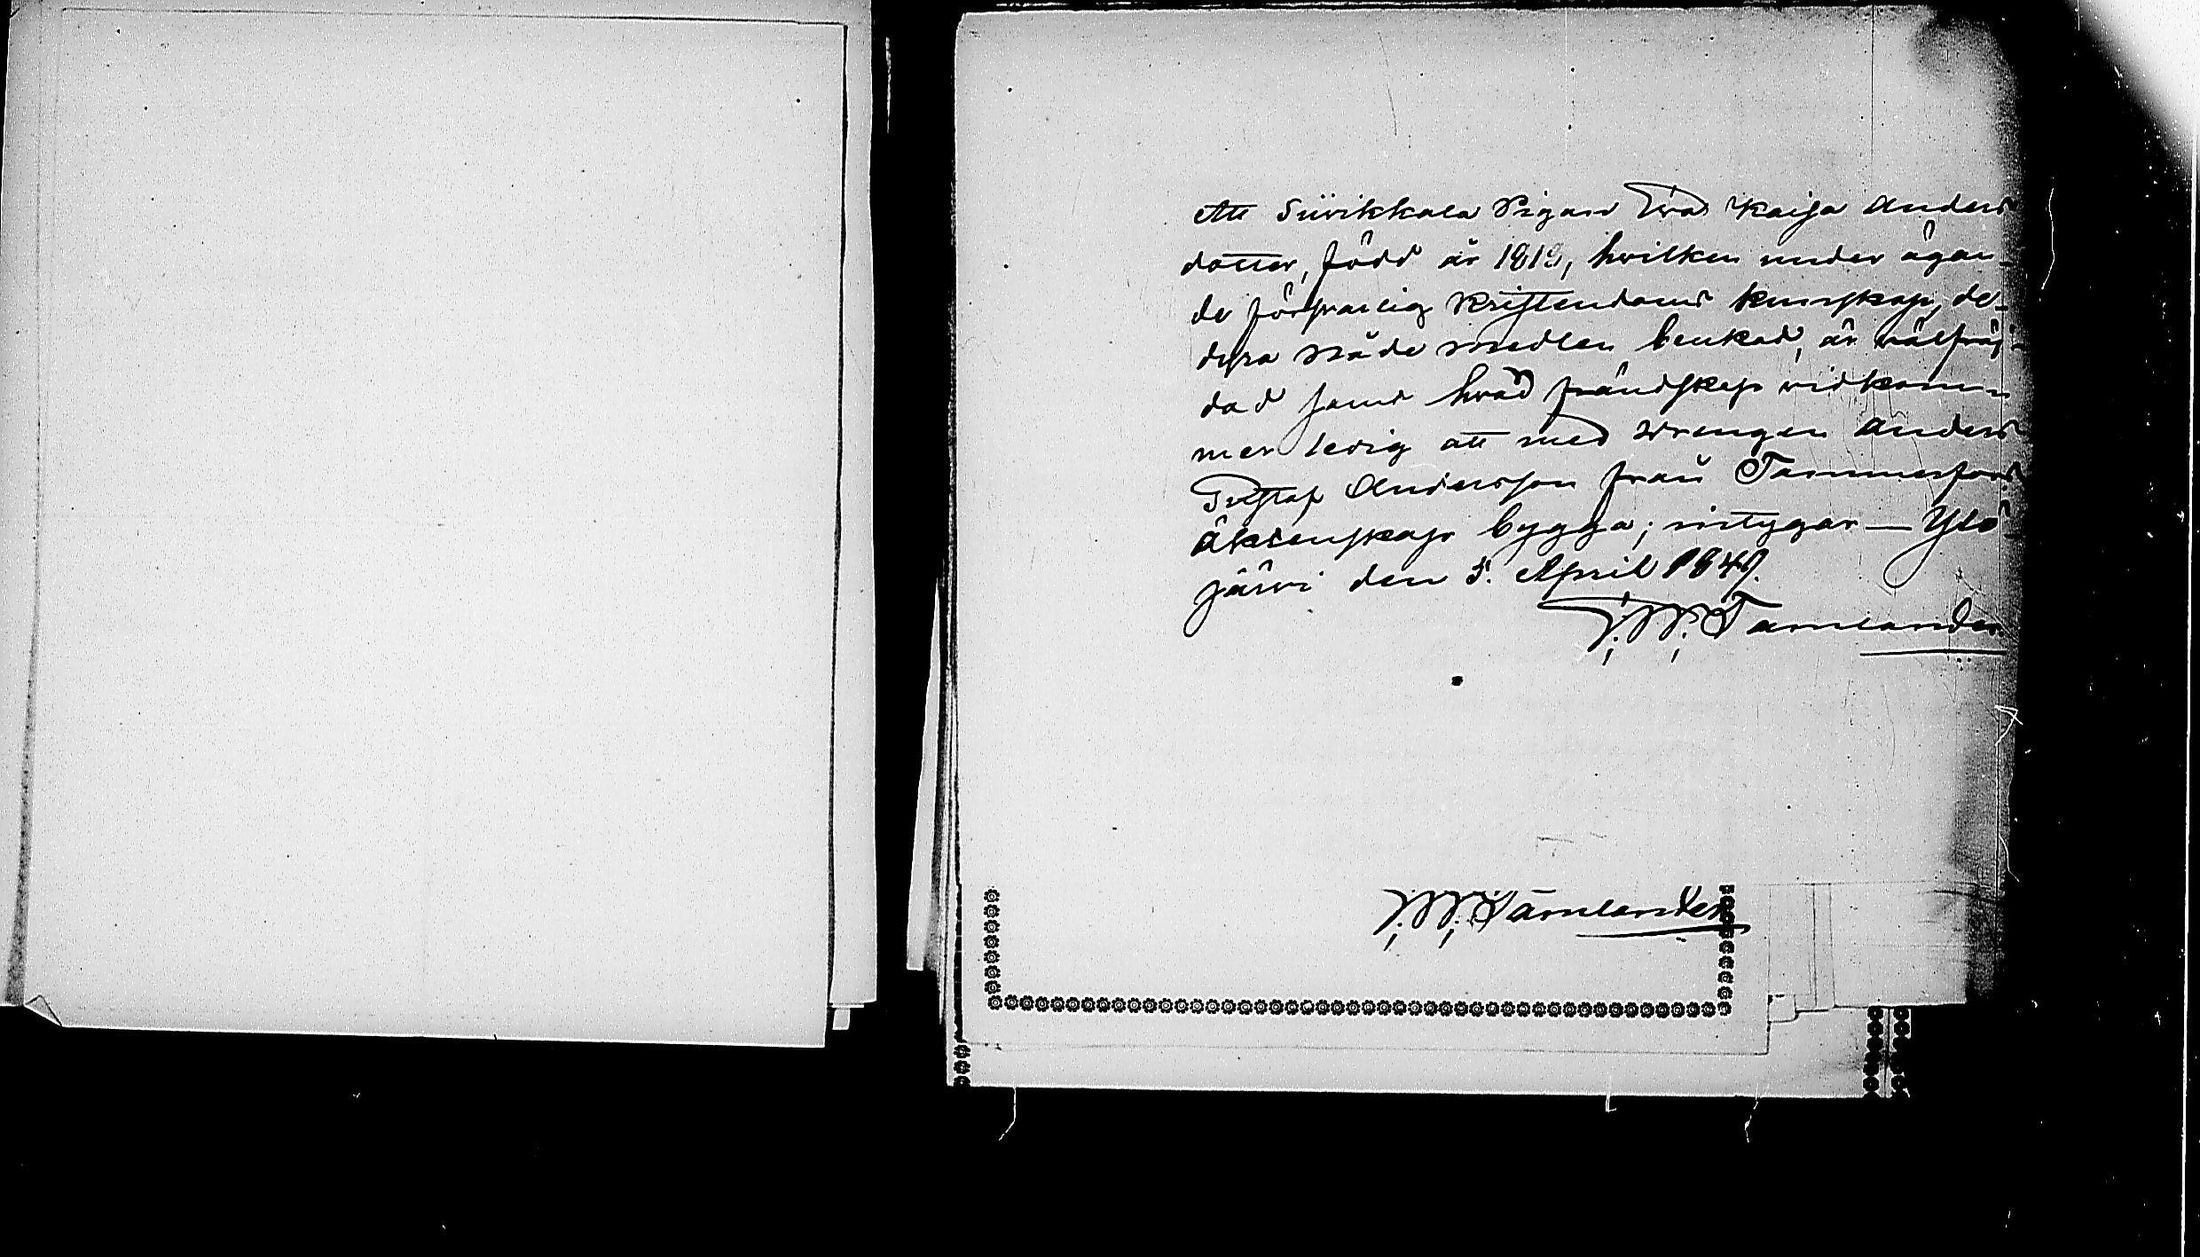 Att Siivikkala Pigan Eva Kaisa Anders
dotter, född år 1819, hvilken under ägan-
de försvarlig kristendoms kunskap, de
dyra nåde medlen brukad, är välfräj-
dad samt hvad frändskap vidkom-
mer ledig att med Drengen Anders
Gustaf Andersson från Tammerfors
äktenskap bygga; intygar — Ylö
järvi den 5. April 1849.
J. W. Tamlander
J. W. Tamlander